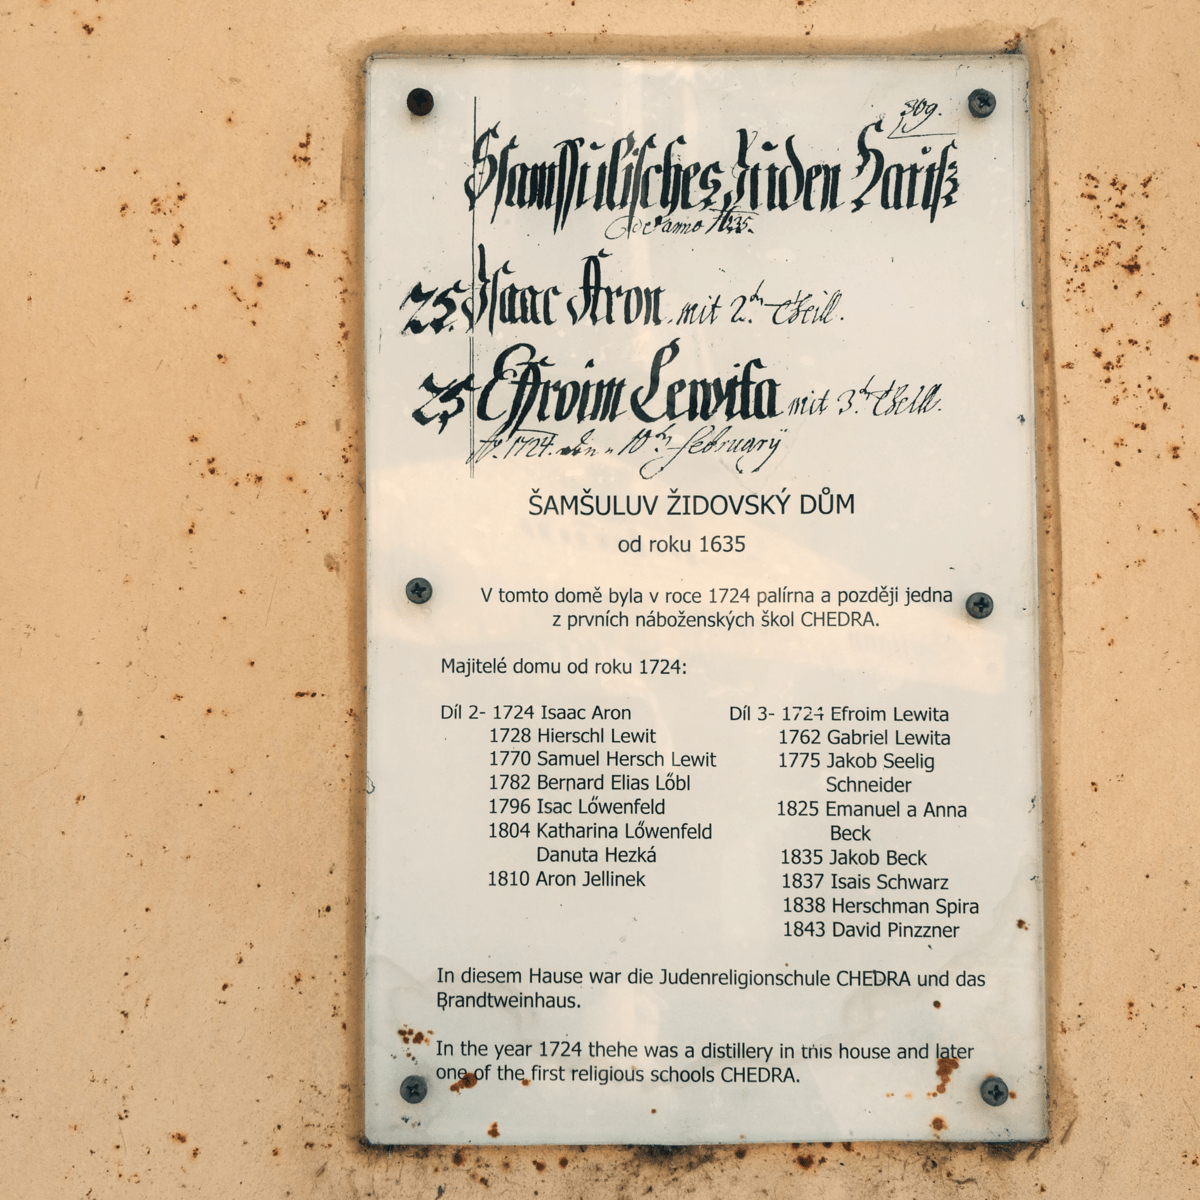 309.
Schamschulisches Juden Hauß
de anno 1635.
25. Isaac Aron mit 2.ten Theill.
25 Effroim Lewita mit 3.ten Theill.
Ao. 1724. den 10ten february
ŠAMŠULUV ŽIDOVSKÝ DŮM
od roku 1635
V tomto domě byla v roce 1724 palírna a později jedna
z prvních náboženských škol CHEDRA.
Majitelé domu od roku 1724:
Díl 2- 1724 Isaac Aron
1728 Hierschl Lewit
1770 Samuel Hersch Lewit
1782 Bernard Elias Lőbl
1796 Isac Lőwenfeld
1804 Katharina Lőwenfeld
Danuta Hezká
1810 Aron Jellinek
Díl 3- 1724 Efroim Lewita
1762 Gabriel Lewita
1775 Jakob Seelig
Schneider
1825 Emanuel a Anna
Beck
1835 Jakob Beck
1837 Isais Schwarz
1838 Herschman Spira
1843 David Pinzzner
In diesem Hause war die Judenreligionschule CHEDRA und das
Brandtweinhaus.
In the year 1724 thehe was a distillery in this house and later
one of the first religious schools CHEDRA.